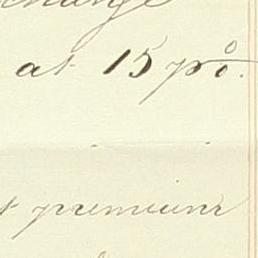 change
at 15 p%.
t premium